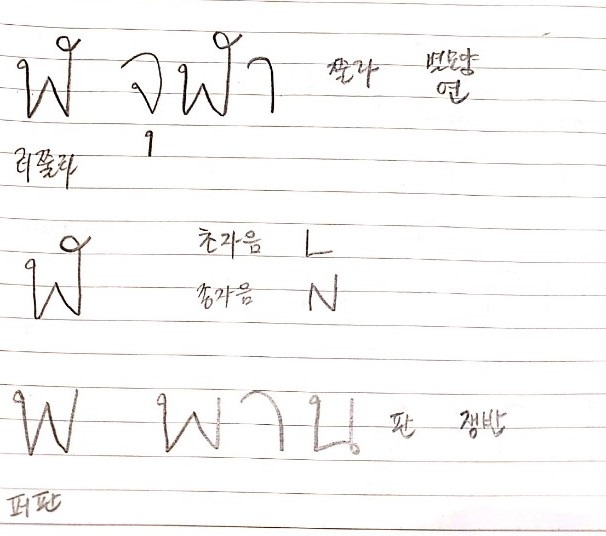 ฬ จุฬา 쭐라 별모양
연
러쭐라
ฬ 초자음 L
종자음 N
พ พาน 판 쟁반
퍼판